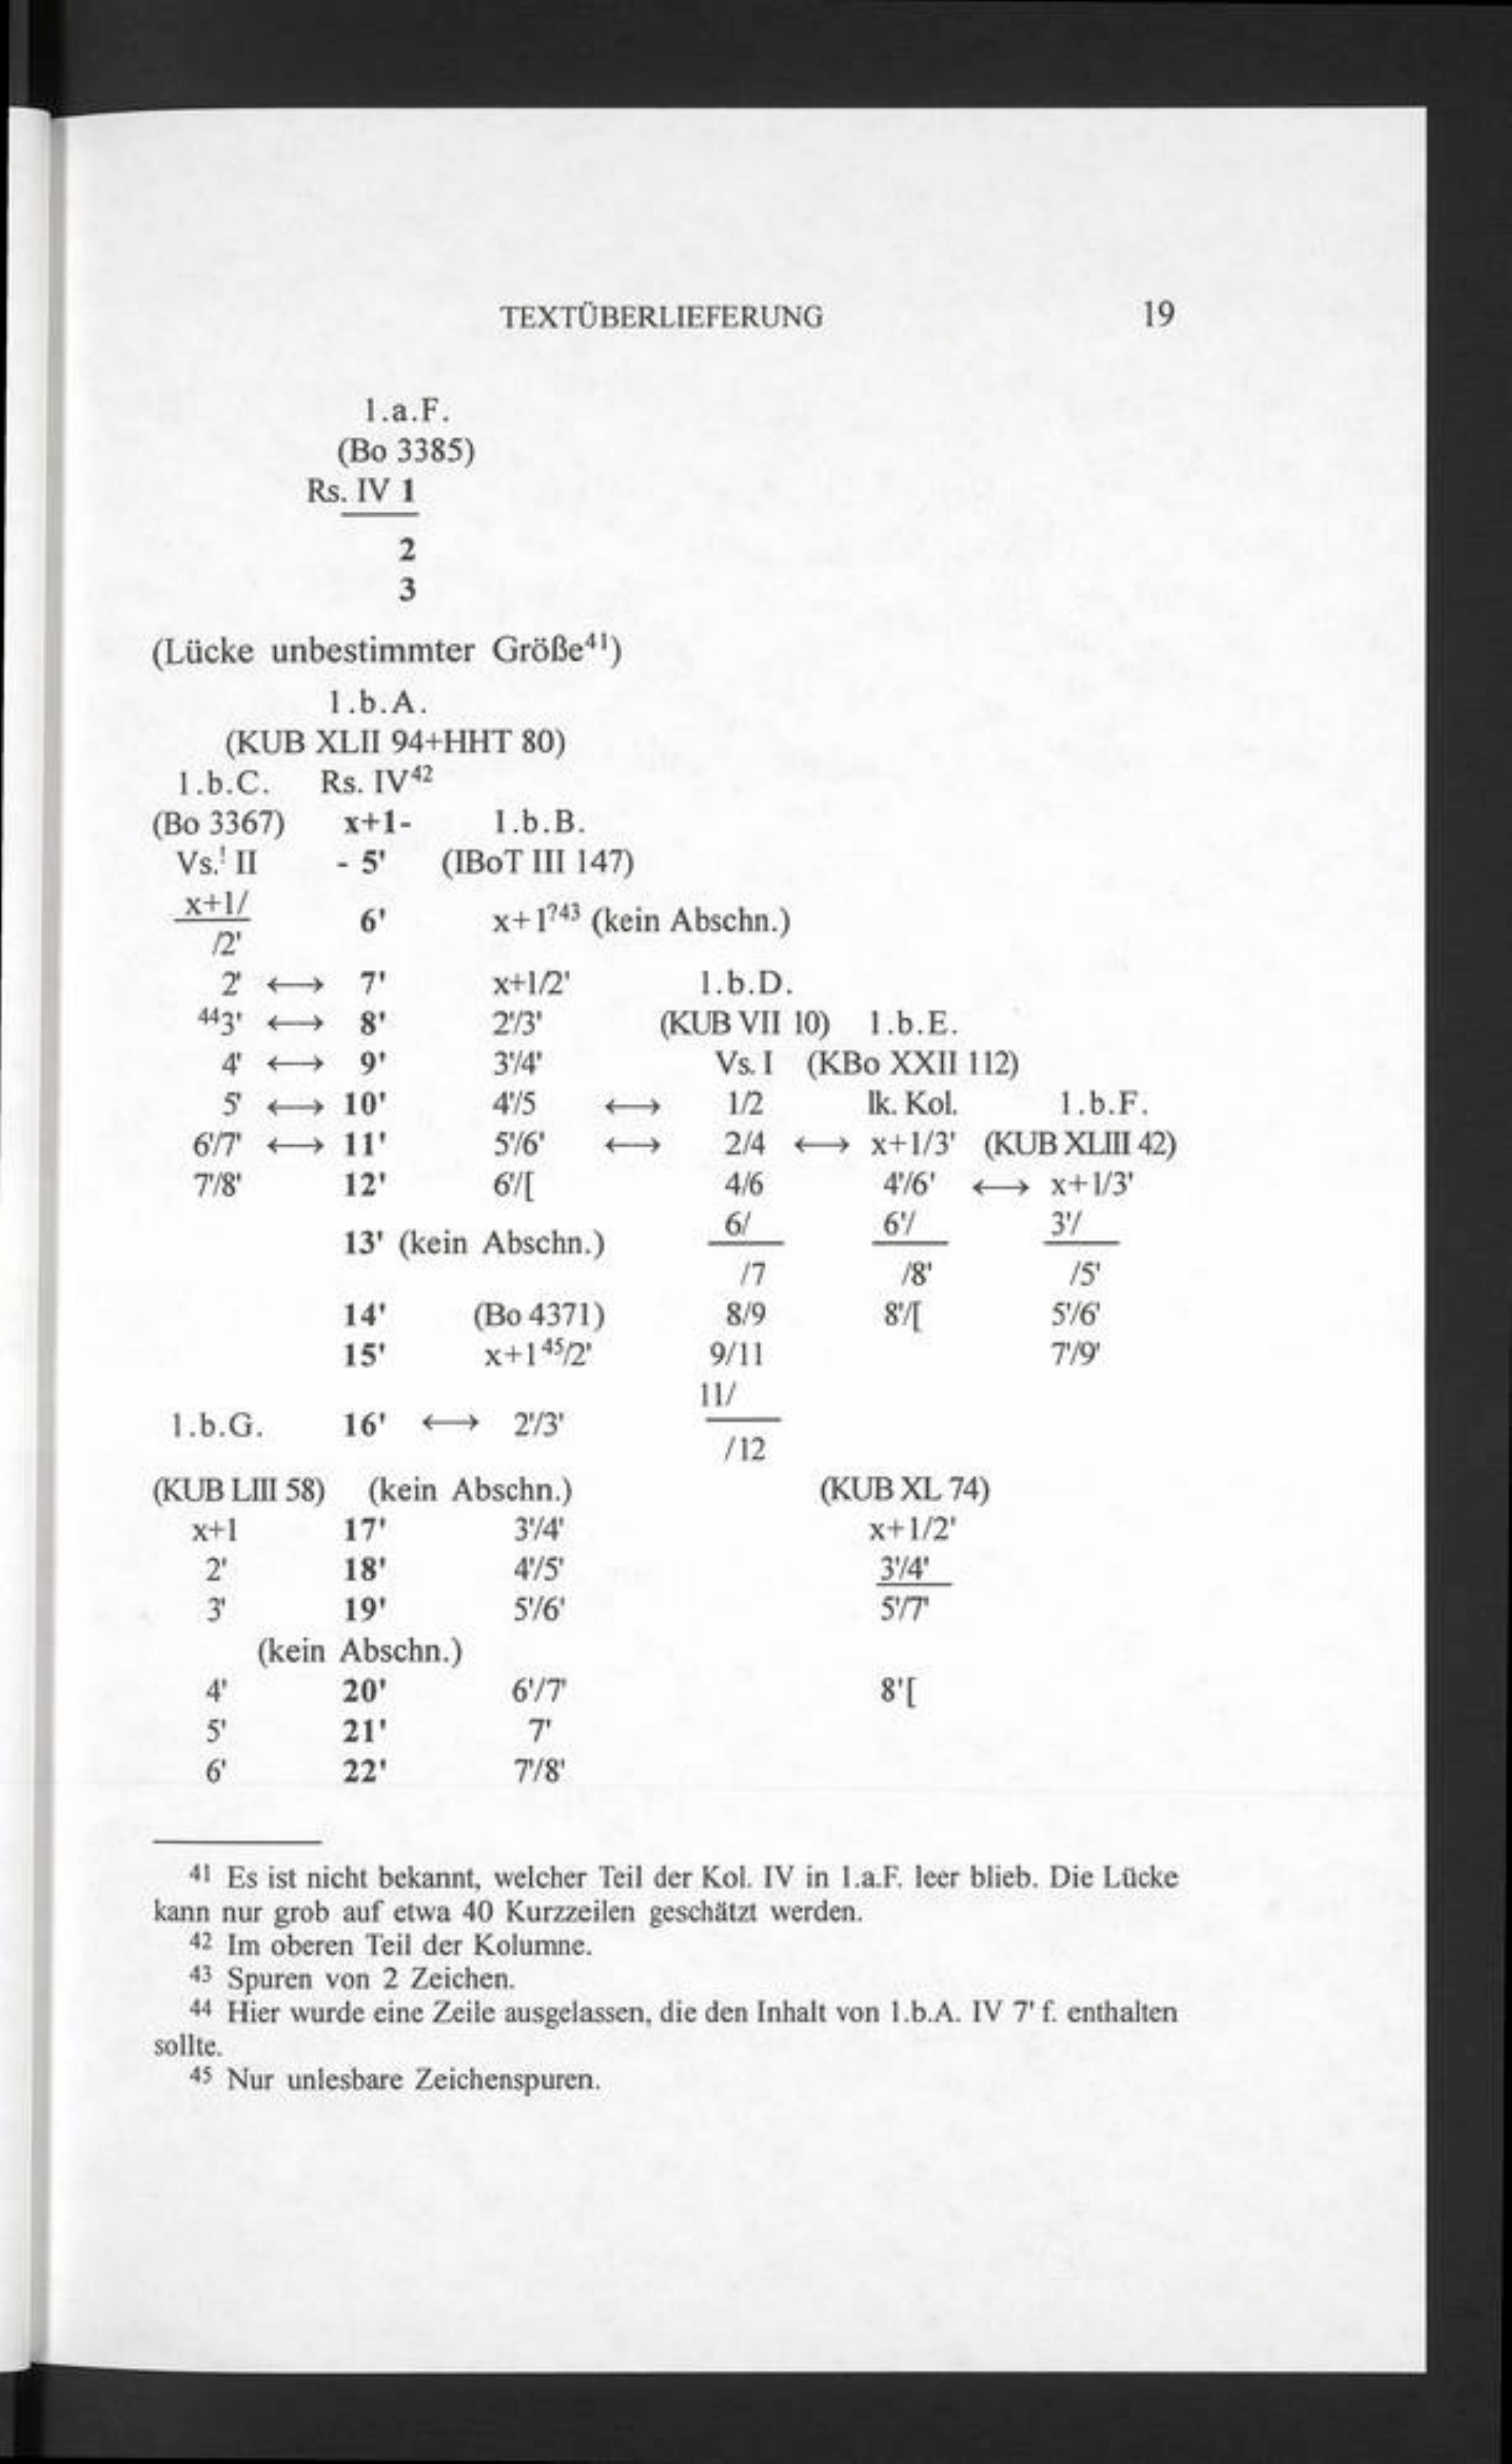 TEXTÜBERLIEFERUNG 19
1.a.F.
(Bo 3385)
Rs. IV 1
2
3
(Lücke unbestimmter Größe⁴¹)
1.b.A.
(KUB XLII 94+HHT 80)
1.b.C. Rs. IV⁴²
(Bo 3367) x+1- 1.b.B.
Vs.! II - 5' (IBoT III 147)
x+1/
6' x+1?⁴³ (kein Abschn.)
/2'
2' ⟷ 7' x+1/2' 1.b.D.
⁴⁴3' ⟷ 8' 2'/3' (KUB VII 10) 1.b.E.
4' ⟷ 9' 3'/4' Vs. I (KBo XXII 112)
5' ⟷ 10' 4'/5 ⟷ 1/2 lk. Kol. 1.b.F.
6'/7' ⟷ 11' 5'/6' ⟷ 2/4 ⟷ x+1/3' (KUB XLIII 42)
7'/8' 12' 6'/[ 4/6 4'/6' ⟷ x+1/3'
6/ 6'/ 3'/
13' (kein Abschn.)
/7 /8' /5'
14' (Bo 4371) 8/9 8'/[ 5'/6'
15' x+1⁴⁵/2' 9/11 7'/9'
11/
1.b.G. 16' ⟷ 2'/3'
/12
(KUB LIII 58) (kein Abschn.) (KUB XL 74)
x+1 17' 3'/4' x+1/2'
2' 18' 4'/5' 3'/4'
3' 19' 5'/6' 5'/7'
(kein Abschn.)
4' 20' 6'/7' 8'[
5' 21' 7'
6' 22' 7'/8'
41 Es ist nicht bekannt, welcher Teil der Kol. IV in 1.a.F. leer blieb. Die Lücke
kann nur grob auf etwa 40 Kurzzeilen geschätzt werden.
42 Im oberen Teil der Kolumne.
43 Spuren von 2 Zeichen.
44 Hier wurde eine Zeile ausgelassen, die den Inhalt von 1.b.A. IV 7' f. enthalten
sollte.
45 Nur unlesbare Zeichenspuren.